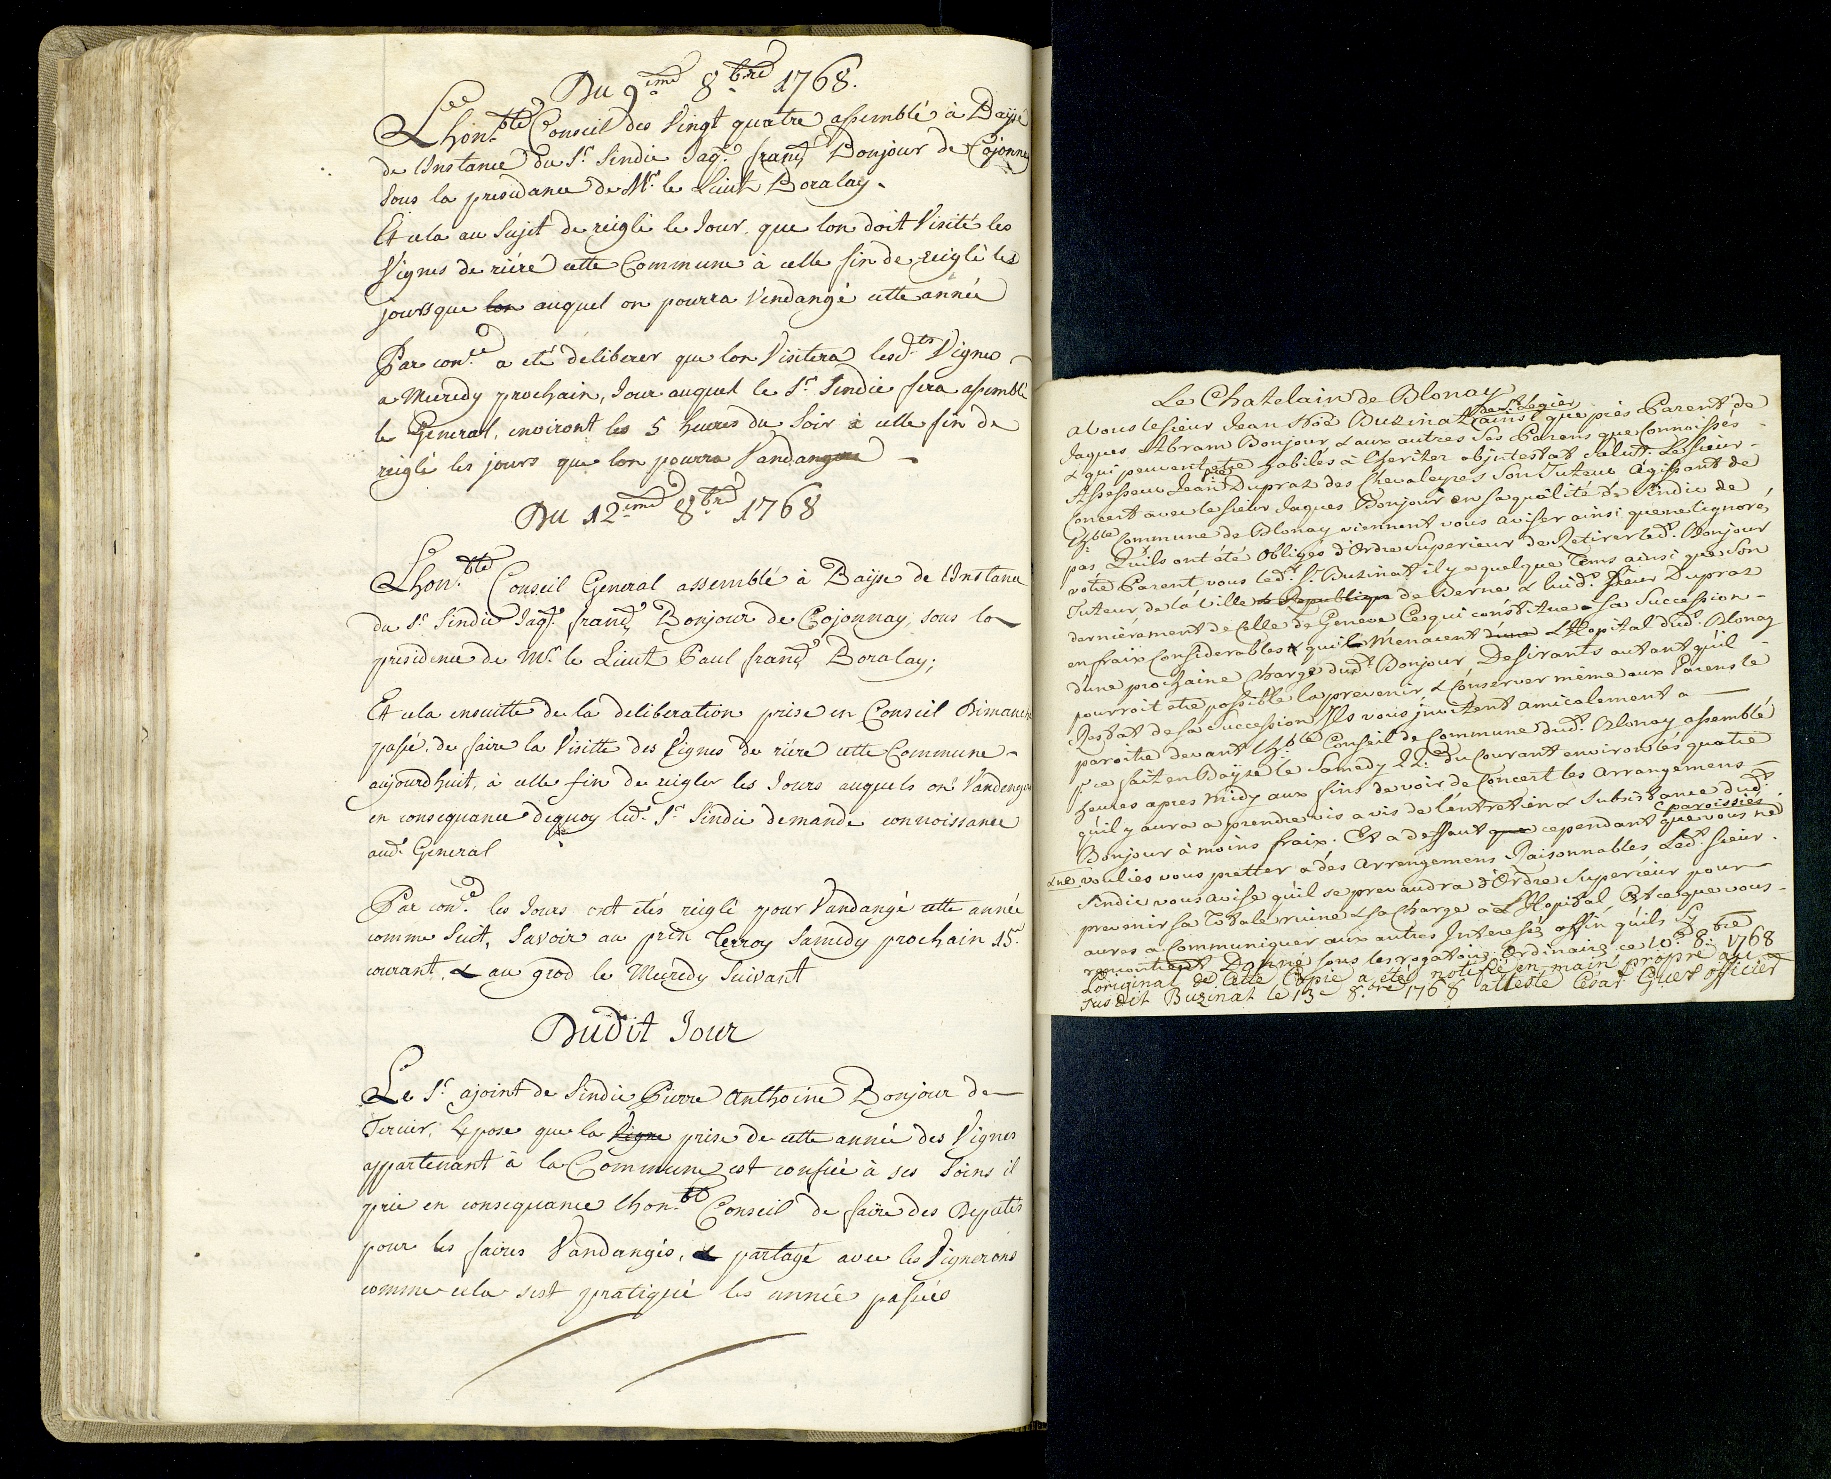 Du 9.eme 8.bre 1768.
Lhon.ble Conseil des Vingt quatre assemblé à Bayse
de l'Instance du S.r Sindic Jaq.s franç.s Bonjour de Cojonnay
Sous la presidance de M.r le Lieut Boralay.
Et cela au Sujet de reiglé le Jour que lon doit Visité les
Vignes de riére cette Commune à celle fin de reiglé les
jours que lon auquel on pourra Vendangé cette année
Par con.ce a eté deliberer que lon Visitera lesd.tes Vignes
a Mecredy prochain, Jour auquel le S.r Sindic fera assemblé
le General, environt les 5 heures du Soir à celle fin de
reiglé les jours que lon pourra Vandanger
Du 12.eme 8.bre 1768
Lhon.ble Conseil General assemblé à Bayse de l'Instance
du S.r Sindic Jaq.s franç.s Bonjour de Cojonnay, sous la
presidence de M.r le Lieut Paul franç.s Boralay;
Et cela ensuitte de la deliberation prise en Conseil Dimanche
passé, de faire la Visitte des Vignes de riére cette Commune
aujourdhuit, à celle fin de reigler les Jours auquels on Vandenge
en consequance dequoy led.t S.r Sindic demande connoissance
aud.t General
Par con.ce les Jours ont etés reiglé pour Vandangé cette année
comme Suit, Savoir au prin Terroy Samedy prochain 15.e
courant, & au grod le Mecredy Suivant
Dudit Jour
Le S.r ajoint de Sindic Pierre Anthoine Bonjour de
Tercier, Expose que la Vigne prise de cette année des Vignes
appartenant à la Commune est confiée à ses Soins il
prie en consequance lhon.ble Conseil de faire des Deputés
pour les faires Vandangés, & partagé avec les Vignerons
comme cela sest pratiqué les année passées
Le Chatelain de Blonay
de St. Legier
A vous le sieur Jean Noé Buzinat ainsi que près Parent de
Jaques Abram Bonjour & aux autres Ses Parens que Connoissés
& qui peuvent etre habiles à lheriter abjntestat Salut. Le sieur
Assesseur Jean Pre Dupraz des Chevaleyres Son Tuteur Agissant de
Concert avec le sieur Jaques Bonjour en Sa qualité de Sindic de
l'h.ble Commune de Blonay viennent vous aviser ainsi que ne l'ignorés
pas, Quils ont été Obligés d'Ordre Superieur de Retirer led.t Bonjour
votre Parent vous led.t S.r Buzinat il y a quelque Tems ainsi que Son
Tuteur de la ville de Republique de Berne & luid.t Sieur Dupraz
derniérement de Celle de Genéve Ce qui constitue Sa Succession
en fraix Considerables & quil Menacent d'une L'Hopital dud.t Blonay
d'une prochaine Charge dud.t Bonjour, Desirants autant qu'il
pourroit etre possible la prevenir, & Conserver même aux Parens le
Restat de Sa Succession Ils vous jnvitent amicalement a
paroitre devant l'h.ble Conseil de Commune dud.t Blonay assemblé
p.r ce fait en Bayse le Samedy du Courant environ les quatre
heures apres midy aux fins de voir de Concert les arrangemens
qu'il y aura a prendre vis a vis de l'entretien & Subsistance dud.t
Bonjour à moins fraix. Et a deffaut que cependant que vous ne paroissiés
& ne vouliés vous pretter a des arrengemens Raisonnables Led.t sieur
Sindic vous avise qu'il se prevaudra d'Ordre Superieur pour
prevenir sa Totale ruine & sa Charge a L'Hopital Et ce que vous
aurés a Communiquer aux autres Interessés affin qu'ils s'y
rencontrent Donné sous les rogatoir. Ordinaires ce 10.e 8.bre 1768
L'original de Cette Copie a été notifié en main propre au
sus dit Buzinat le 13.e 8.bre 1768 atteste Cesar Guex officier